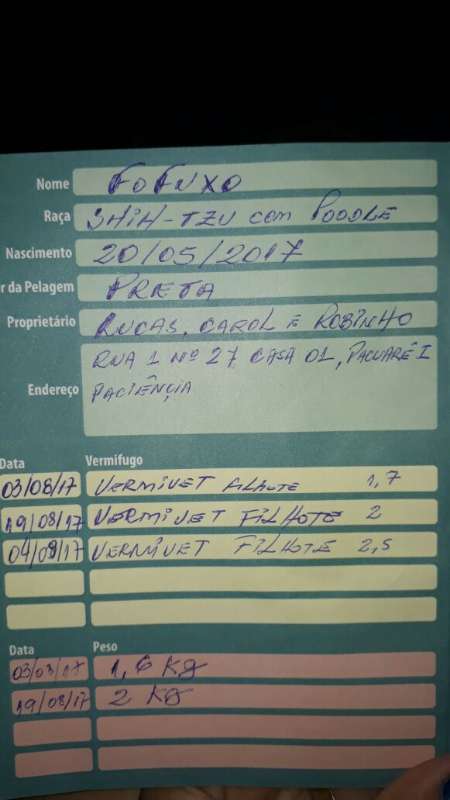 Nome FOFUXO
Raça SHIH-TZU com POODLE
Nascimento 20/05/2017
r da Pelagem PRETA
Proprietário LUCAS, CAROL E ROBINHO
RUA 1 Nº 27 CASA 01, PACUARÊ I
Endereço PACIÊNCIA
Data Vermifugo
03/08/17 VERMIVET FILHOTE 1,7
19/08/17 VERMIVET FILHOTE 2
04/09/17 VERMIVET FILHOTE 2,5
Data Peso
03/08/17 1,6 Kg
19/08/17 2 Kg